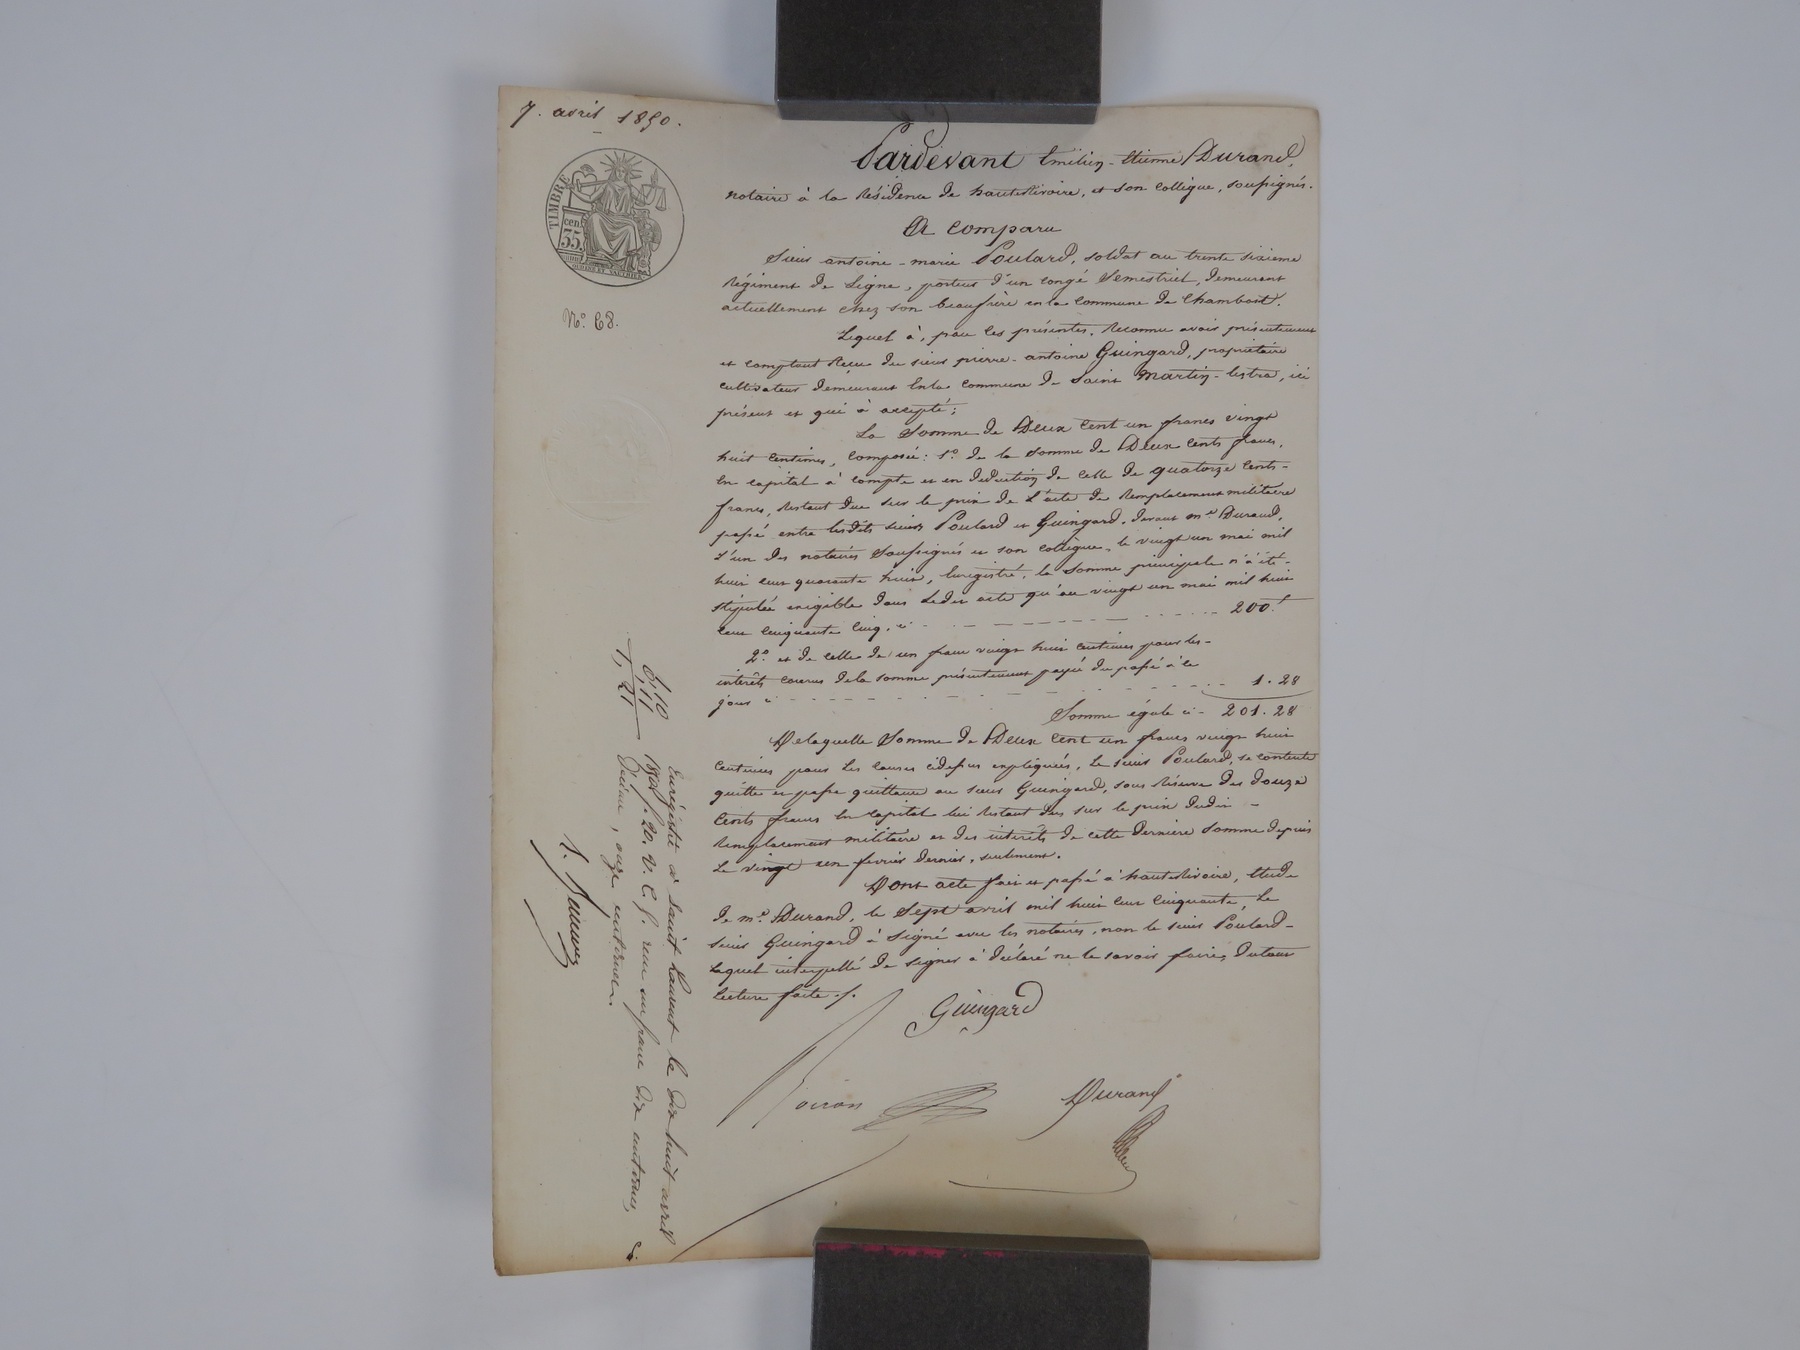 7. avril 1850.
TIMBRE
cen.
35.
N.º 68.
Pardevant Emilien-Etienne Durand,
notaire à la Résidence de hauterivoire, et son collègue, soussignés.
A comparu
Sieur antoine-marie Poulard, soldat au trente sixieme
Régiment de Ligne, porteur d'un congé Semestriel, demeurant
actuellement chez son beaufrère en la commune de Chambost.
Lequel à, par ces présentes, Reconnu avoir présentement
et comptant Recu du sieur pierre-antoine Guingard, propriétaire
cultivateur demeurant en la commune de Saint Martin-lestra, ici
présent et qui à accepté;
La Somme de Deux Cent un francs vingt
huit Centimes, Composée: 1.º de la somme de Deux Cents francs,
En capital à compte et en deduction de celle de quatorze Cents-
francs, Restant due sur le prix de l'acte de Remplacement militaire
passé entre lesdits sieurs Poulard et Guingard, devant m.e Durand,
l'un des notaires Soussignés et son collègue, le vingt un mai mil
huit cent quarante huit, Enregistré, la somme principale n'à été-
stipulée exigible dans Ledit acte qu'au vingt un mai mil huit
cent Cinquante Cinq, ci 200.f
2.º et de celle de un franc vingt huit Centimes pour les-
interêts courus de la somme présentement payée du passé à ce
jour ci 1.28
Somme égale ci- 201.28
De laquelle Somme de Deux Cent un francs vingt huit
Centimes pour les causes cidessus expliquées, Le sieur Poulard, se contente
quitte et passe quittance au sieur Guingard, sous Réserve des douze
Cents francs En Capital lui Restant dus sur le prix dudit-
Remplacement militaire et des interêts de cette dernière somme depuis
Le vingt un fevrier dernier, seulement.
Dont acte fait et passé à hauterivoire, Etude
de m.e Durand, le Sept avril mil huit cent Cinquante, Le
sieur Guingard à signé avec les notaires, non le sieur Poulard-
Lequel interpellé de signer à déclaré ne le savoir faire, du tout
lecture faite ./.
Guingard
Durand
Enregistré à Saint Laurent le dix huit avril
1850, f. 20. V. C. 7. reçu un franc dix centimes,
Décime, onze centimes.
1,10
11
1,21